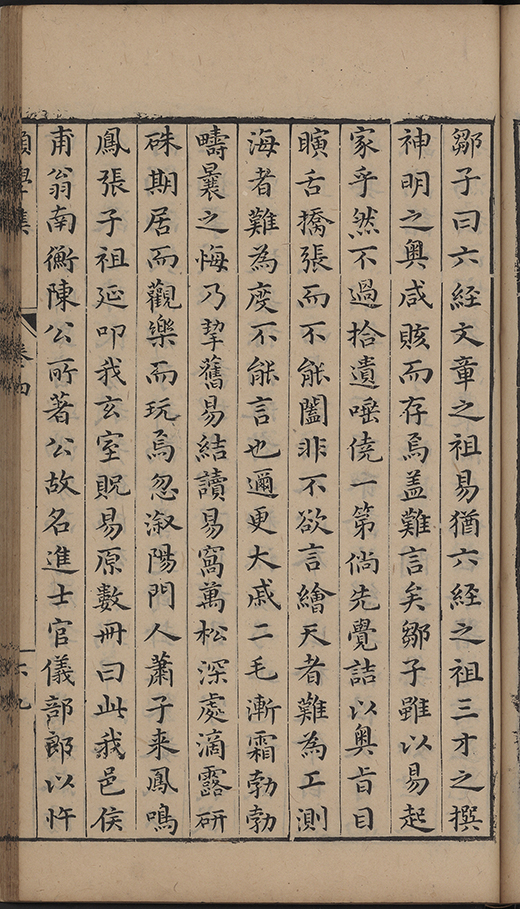 鄒子曰六經文章之祖易猶六經之祖三才之撰
神明之奧咸賅而存焉盖難言矣鄒子雖以易起
家乎然不過拾遺唾僥一第倘先覺詰以奥旨目
瞚舌撟張而不能闔非不欲言繪天者難為工測
海者難為度不能言也邇更大戚二毛漸霜勃勃
疇曩之悔乃挈舊易結讀易窩萬松深處滴露研
硃期居而觀樂而玩焉忽溆陽門人蕭子来鳳鳴
鳳張子祖延叩我玄室貺易原數冊曰此我邑侯
甫翁南衡陳公所著公故名進士官儀部郎以忤
願學集
卷四
六九